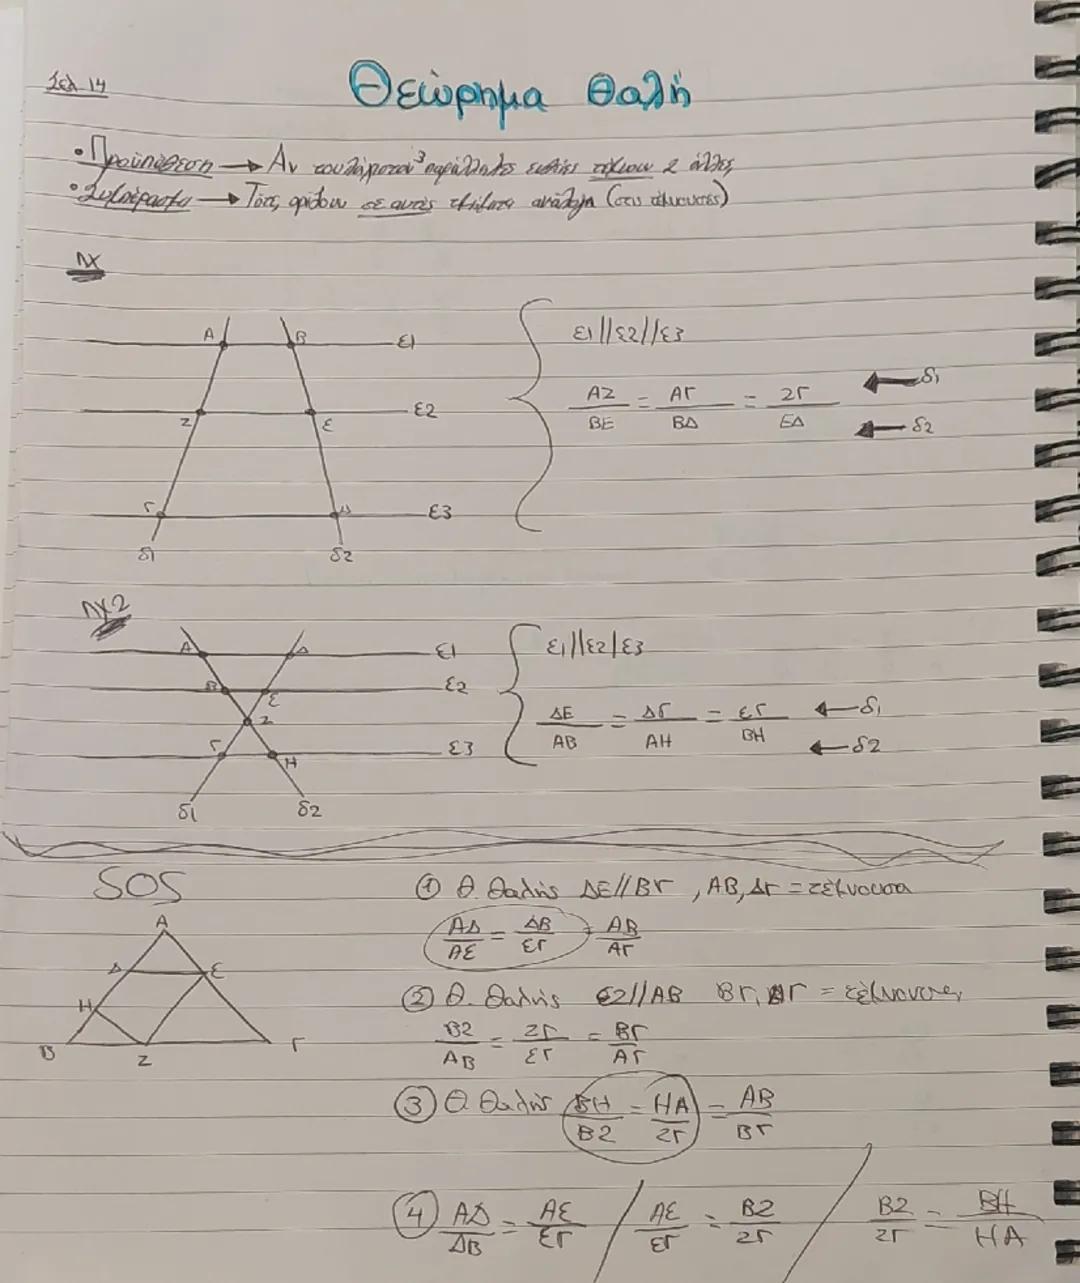 Σελ 14
Θεώρημα Θαλή
• Προϋπόθεση → Αν τουλάχιστον 3 παράλληλες ευθείες τέμνουν 2 άλλες
• Συμπέρασμα → Τότε, ορίζουν σε αυτές τμήματα ανάλογα (στις τέμνουσες)
πχ
A B ε1
Z E ε2
Γ Δ ε3
δ1 δ2
ε1//ε2//ε3
AZ/BE = AΓ/BΔ = ZΓ/EΔ ← δ1 ← δ2
πχ2
A Δ ε1
B E ε2
Z
Γ H ε3
δ1 δ2
ε1//ε2/ε3
ΔE/AB = ΔΓ/AH = EΓ/BH ← δ1 ← δ2
SOS
A
Δ E
H
B Z Γ
① Θ. Θαλής ΔE//BΓ , AB, ΔΓ = τέμνουσα
AΔ/AE = ΔB/EΓ = AB/AΓ
② Θ. Θαλής EZ//AB BΓ, AΓ = τέμνουσες
BZ/AB = ZΓ/EΓ = BΓ/AΓ
③ Θ Θαλής BH/BZ = HA/ZΓ = AB/BΓ
④ AΔ/ΔB = AE/EΓ / AE/EΓ = BZ/ZΓ / BZ/ZΓ = BH/HA